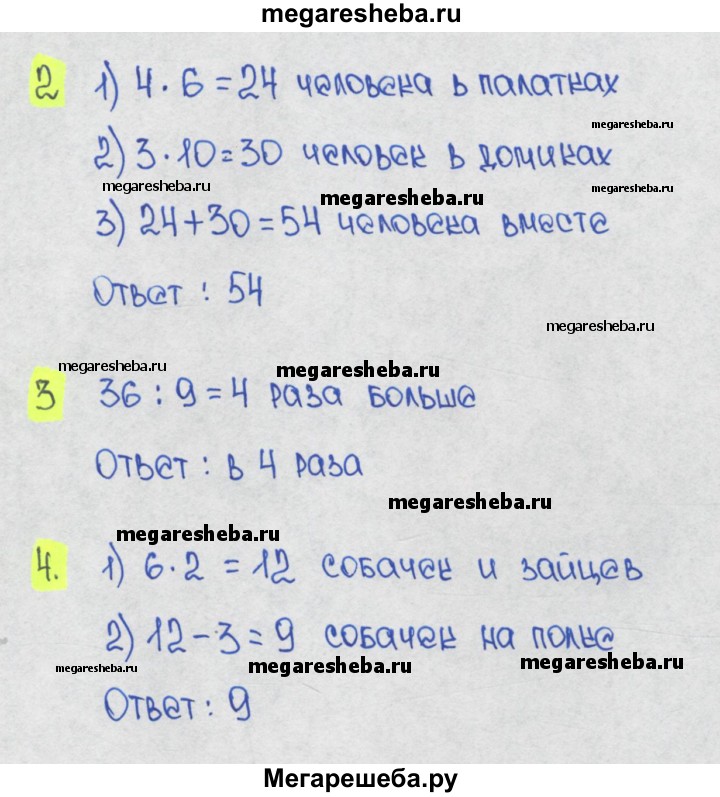 megaresheba.ru
2 1) 4 · 6 = 24 человека в палатках
megaresheba.ru
2) 3 · 10 = 30 человек в домиках
megaresheba.ru
megaresheba.ru
megaresheba.ru
3) 24 + 30 = 54 человека вместе
Ответ : 54
megaresheba.ru
megaresheba.ru
megaresheba.ru
3 36 : 9 = 4 раза больше
Ответ : в 4 раза
megaresheba.ru
megaresheba.ru
4. 1) 6 · 2 = 12 собачек и зайцев
2) 12 - 3 = 9 собачек на полке
megaresheba.ru
megaresheba.ru
megaresheba.ru
Ответ : 9
Мегарешеба.ру